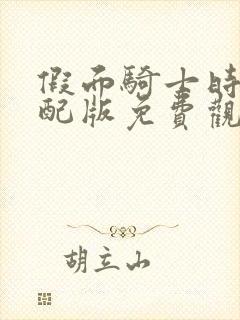 假面騎士時
配版免費觀
胡立山